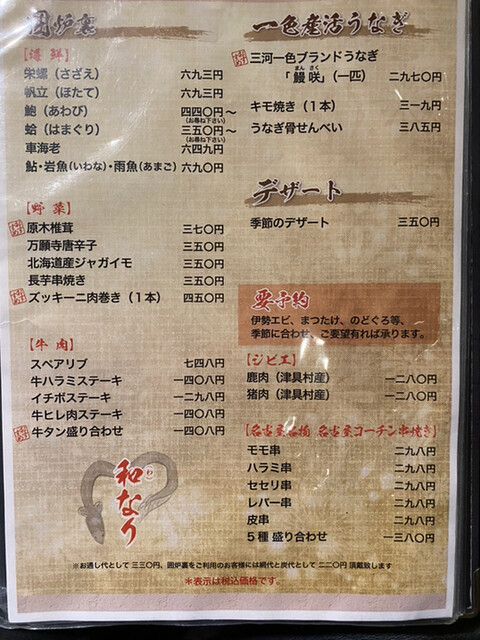 囲炉裏
【海鮮】
栄螺（さざえ） 六九三円
帆立（ほたて） 六九三円
鮑（あわび） 四四〇円～
（お尋ね下さい）
蛤（はまぐり） 三五〇円～
（お尋ね下さい）
車海老 六四九円
鮎・岩魚（いわな）・雨魚（あまご） 六九〇円
【野菜】
原木椎茸 三七〇円
万願寺唐辛子 三五〇円
北海道産ジャガイモ 三五〇円
長芋串焼き 三五〇円
ズッキーニ肉巻き（１本） 四五〇円
【牛肉】
スペアリブ 七四八円
牛ハラミステーキ 一四〇八円
イチボステーキ 一二九八円
牛ヒレ肉ステーキ 一四〇八円
牛タン盛り合わせ 一四〇八円
和なり
わ
一色産活うなぎ
三河一色ブランドうなぎ
まんさく
「鰻咲」（一匹） 二九七〇円
キモ焼き（１本） 三一九円
うなぎ骨せんべい 三八五円
デザート
季節のデザート 三五〇円
要予約
伊勢エビ、まつたけ、のどぐろ等、
季節に合わせ、ご要望有れば承ります。
【ジビエ】
鹿肉（津具村産） 一二八〇円
猪肉（津具村産） 一二八〇円
【名古屋名物 名古屋コーチン串焼き】
モモ串 二九八円
ハラミ串 二九八円
セセリ串 二九八円
レバー串 二九八円
皮串 二九八円
５種 盛り合わせ 一三八〇円
※お通し代として 三三〇円、囲炉裏をご利用のお客様には網代と炭代として 二二〇円 頂戴致します
＊表示は税込価格です。